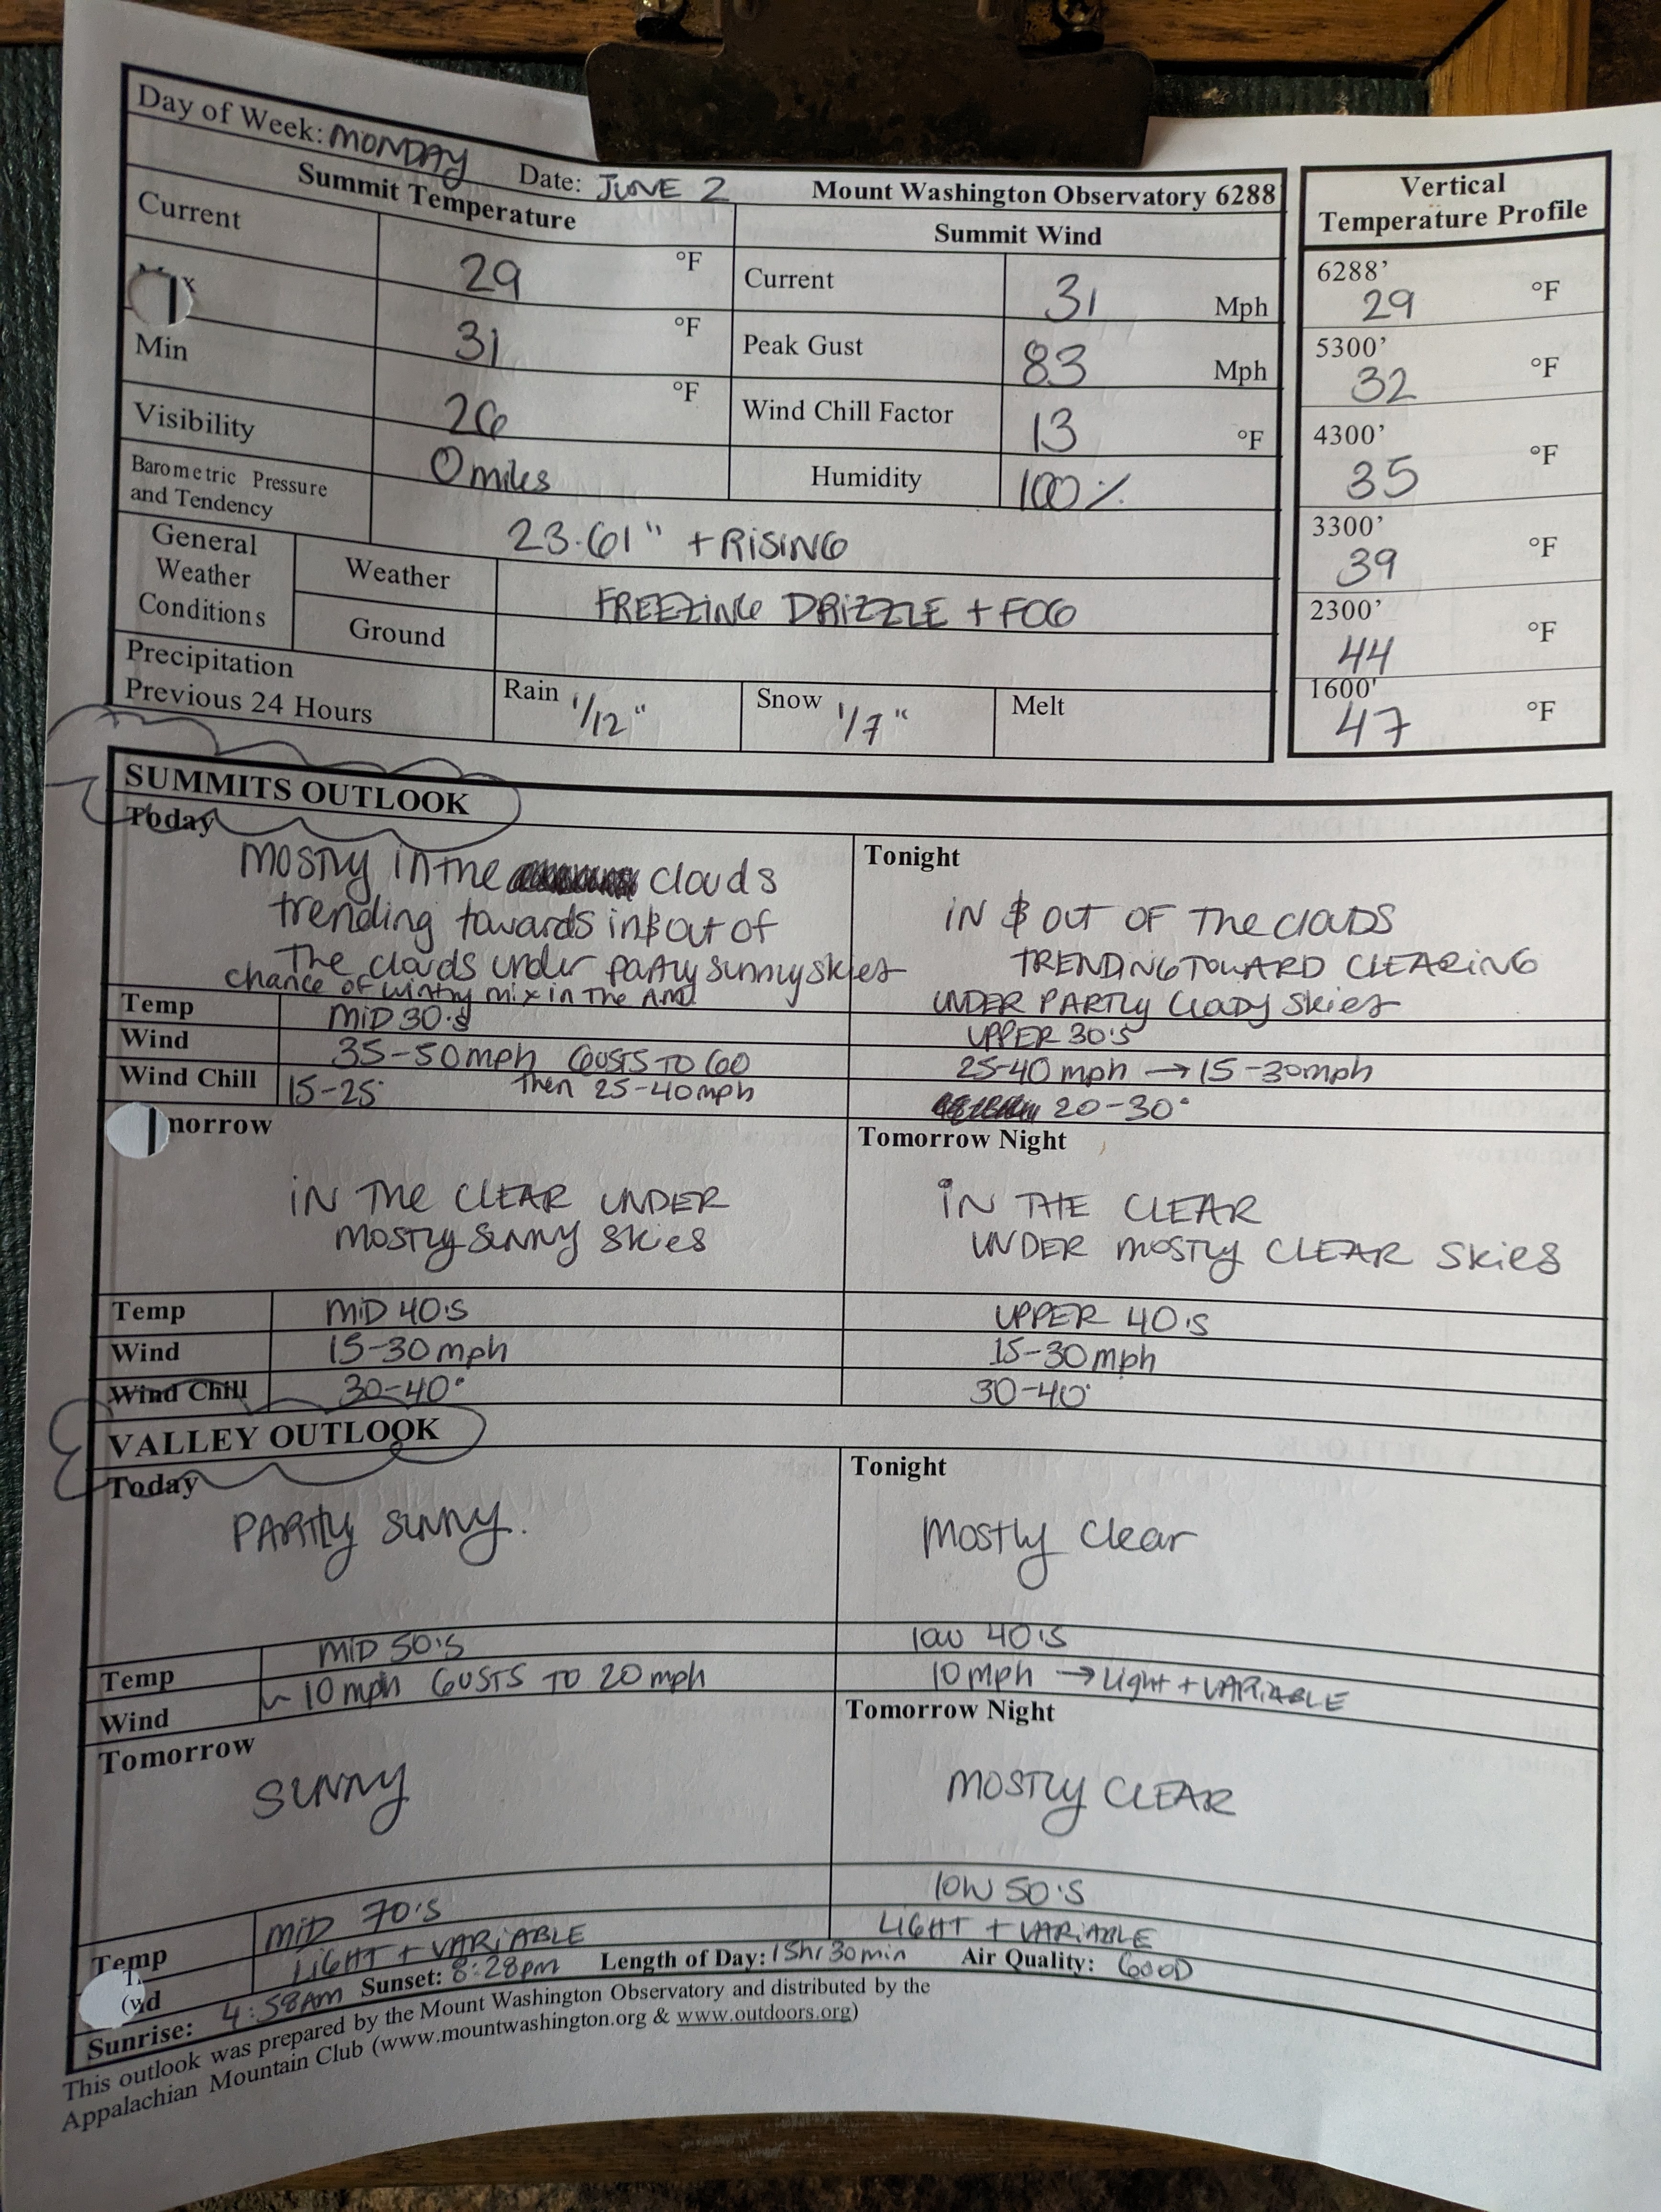 Day of Week: MONDAY Date: JUNE 2 Mount Washington Observatory 6288
Summit Temperature
Summit Wind
Current 29 °F
Current 31 Mph
31 °F
Peak Gust 83 Mph
Min 26 °F
Wind Chill Factor 13 °F
Visibility 0 miles
Humidity 100%
Barometric Pressure
and Tendency
23.61" + RISING
General
Weather
Conditions
Weather FREEZING DRIZZLE + FOG
Ground
Precipitation
Previous 24 Hours
Rain 1/12"
Snow 1/7"
Melt
Vertical
Temperature Profile
6288'
29 °F
5300'
32 °F
4300'
35 °F
3300'
39 °F
2300'
44 °F
1600'
47 °F
SUMMITS OUTLOOK
Today
mostly in the clouds
trending towards in & out of
The clouds under partly sunny skies
chance of wintry mix in The AM
Temp MID 30's
Wind 35-50mph GUSTS TO 60
then 25-40mph
Wind Chill 15-25°
Tonight
IN & OUT OF The CLOUDS
TRENDING TOWARD CLEARING
UNDER PARTLY CLOUDY SKIES
UPPER 30'S
25-40 mph → 15-30mph
20-30°
morrow
IN THE CLEAR UNDER
MOSTLY SUNNY SKIES
Temp MID 40'S
Wind 15-30mph
Wind Chill 30-40°
Tomorrow Night
IN THE CLEAR
UNDER MOSTLY CLEAR SKIES
UPPER 40'S
15-30mph
30-40°
VALLEY OUTLOOK
Today
PARTLY SUNNY.
Temp MID 50'S
Wind ~ 10mph GUSTS TO 20mph
Tonight
mostly clear
low 40'S
10mph → Light + VARIABLE
Tomorrow
SUNNY
Temp MID 70'S
LIGHT + VARIABLE
Tomorrow Night
MOSTLY CLEAR
low 50'S
LIGHT + VARIABLE
Sunrise: 4:58AM Sunset: 8:28pm Length of Day: 15hr 30min Air Quality: GOOD
This outlook was prepared by the Mount Washington Observatory and distributed by the
Appalachian Mountain Club (www.mountwashington.org & www.outdoors.org)